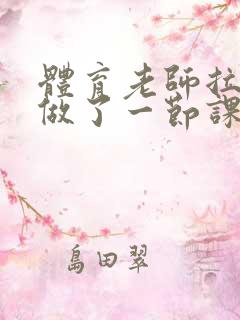 體育老師拉
做了一節課
島田翠